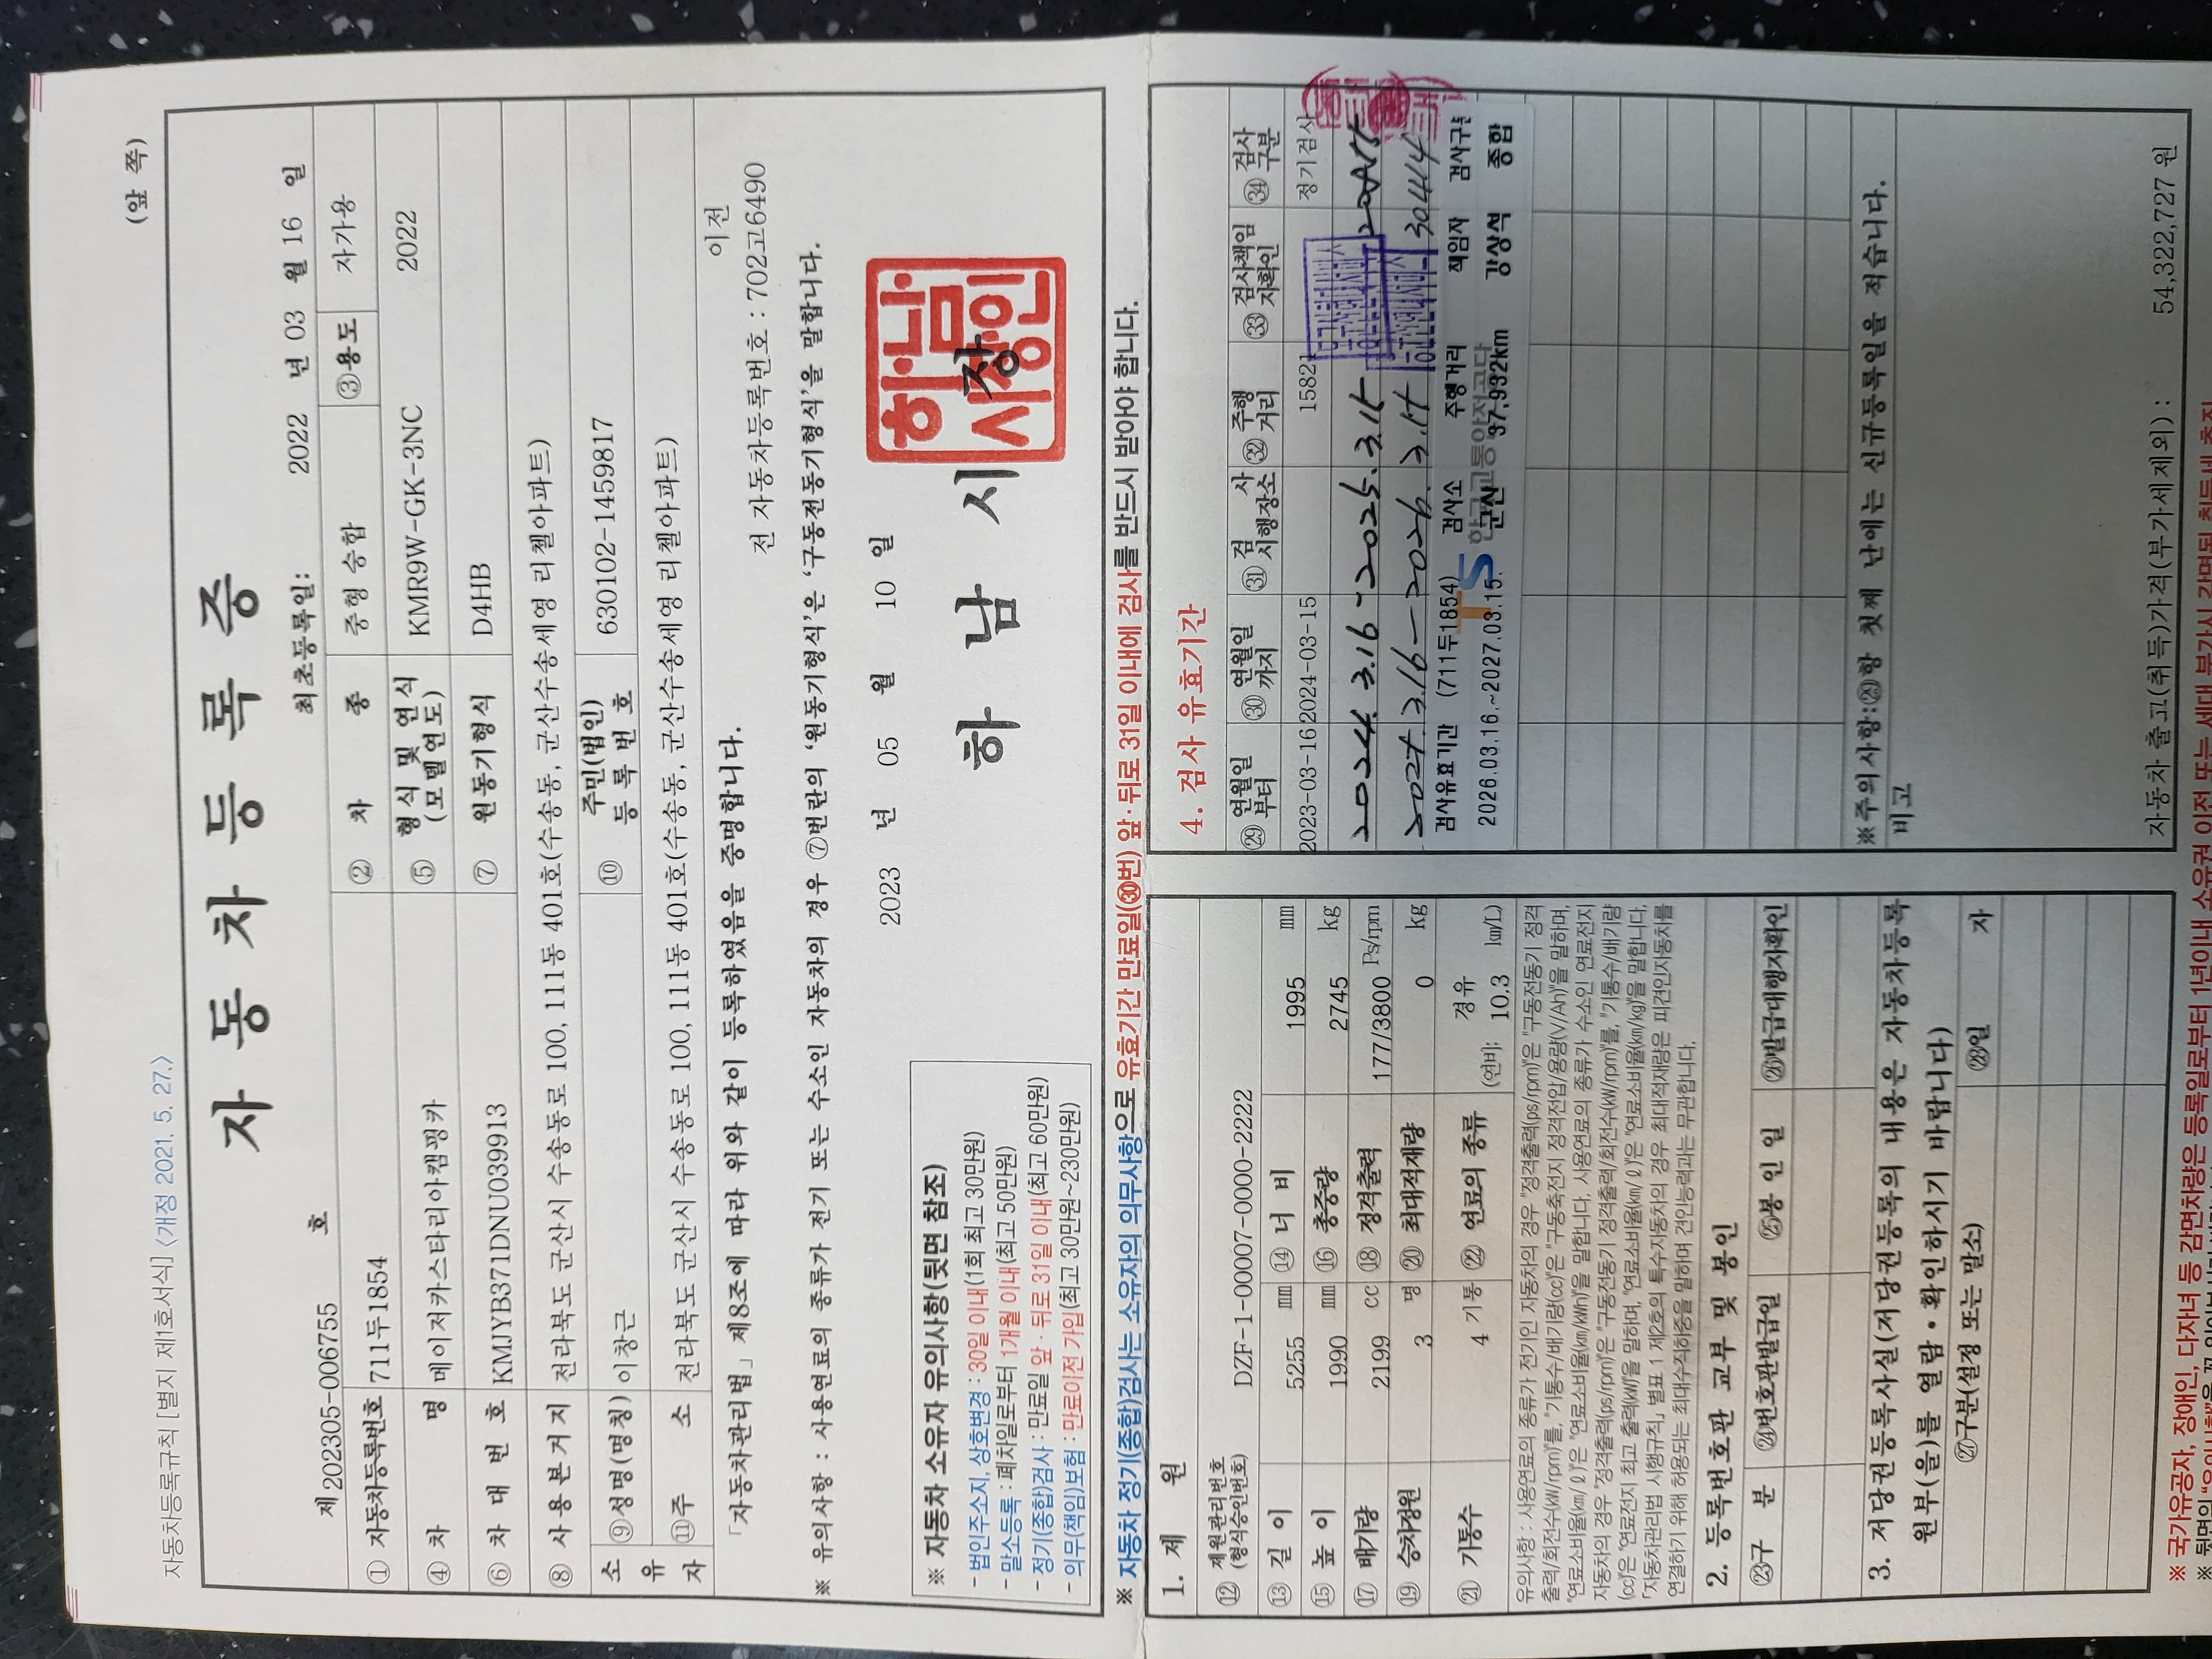 자동차등록규칙 [별지 제1호서식] <개정 2021. 5. 27.>
(앞 쪽)
자 동 차 등 록 증
제 202305-006755 호
최초등록일: 2022 년 03 월 16 일
① 자동차등록번호 711두1854 ② 차 종 중형 승합 ③용도 자가용
④ 차 명 메이저카스타리아캠핑카 ⑤ 형식 및 연식 (모델연도) KMR9W-GK-3NC 2022
⑥ 차 대 번 호 KMJYB371DNU039913 ⑦ 원동기형식 D4HB
⑧ 사용본거지 전라북도 군산시 수송동로 100, 111동 401호(수송동, 군산수송세영 리첼아파트)
소유자 ⑨성명(명칭) 이창근 ⑩ 주민(법인) 등록번호 630102-1459817
⑪주 소 전라북도 군산시 수송동로 100, 111동 401호(수송동, 군산수송세영 리첼아파트)
「자동차관리법」 제8조에 따라 위와 같이 등록하였음을 증명합니다.
이전
전 자동차등록번호 : 702고6490
※ 유의사항 : 사용연료의 종류가 전기 또는 수소인 자동차의 경우 ⑦번란의 '원동기형식'은 '구동전동기형식'을 말합니다.
2023 년 05 월 10 일
※ 자동차 소유자 유의사항(뒷면 참조)
- 법인주소지, 상호변경 : 30일 이내(1회 최고 30만원)
- 말소등록 : 폐차일로부터 1개월 이내(최고 50만원)
- 정기(종합)검사 : 만료일 앞 · 뒤로 31일 이내(최고 60만원)
- 의무(책임)보험 : 만료이전 가입(최고 30만원~230만원)
하 남 시 장
하남시장인
※ 자동차 정기(종합)검사는 소유자의 의무사항으로 유효기간 만료일(㉚번) 앞·뒤로 31일 이내에 검사를 반드시 받아야 합니다.
1. 제 원
⑫ 제원관리번호 (형식승인번호) DZF-1-00007-0000-2222
⑬ 길 이 5255 mm ⑭ 너 비 1995 mm
⑮ 높 이 1990 mm ⑯ 총중량 2745 kg
⑰ 배기량 2199 cc ⑱ 정격출력 177/3800 Ps/rpm
⑲ 승차정원 3 명 ⑳ 최대적재량 0 kg
㉑ 기통수 4 기통 ㉒ 연료의 종류 경유 (연비: 10.3 km/L)
유의사항 : 사용연료의 종류가 전기인 자동차의 경우 "정격출력(ps/rpm)"은 "구동전동기 정격
출력/회전수(kW/rpm)"를, "기통수/배기량(cc)"은 "구동축전지 정격전압/용량(V/Ah)"을 말하며,
"연료소비율(km/ℓ)"은 "연료소비율(km/kWh)"을 말합니다. 사용연료의 종류가 수소인 연료전지
자동차의 경우 "정격출력(ps/rpm)"은 "구동전동기 정격출력/회전수(kW/rpm)"를, "기통수/배기량
(cc)"은 "연료전지 최고 출력(kW)"을 말하며, "연료소비율(km/ℓ)"은 "연료소비율(km/kg)"을 말합니다.
「자동차관리법 시행규칙」 별표 1 제2호의 특수자동차의 경우 최대적재량은 피견인자동차를
연결하기 위해 허용되는 최대수직하중을 말하며 견인능력과는 무관합니다.
2. 등록번호판 교부 및 봉인
㉓구 분 ㉔번호판발급일 ㉕봉 인 일 ㉖발급대행자확인
3. 저당권등록사실(저당권등록의 내용은 자동차등록
원부(을)를 열람 • 확인하시기 바랍니다)
㉗구분(설정 또는 말소) ㉘일 자
4. 검사 유효기간
㉙ 연월일 부터 ㉚ 연월일 까지 ㉛ 검 사 시행장소 ㉜ 주행 거리 ㉝ 검사책임 자확인 ㉞ 검사 구분
2023-03-16 2024-03-15 15821 정기검사
2024. 3.16 - 2025. 3.15
3.16 - 2026. 3.15
검사유효기간 (711두1854) 검사소 주행거리 책임자 검사구분
2026.03.16.~2027.03.15. 군산 37,932km 강상석 종합
TS 한국교통안전공단
※주의사항:㉘항 첫째 난에는 신규등록일을 적습니다.
비고
자동차 출고(취득)가격(부가세제외) : 54,322,727 원